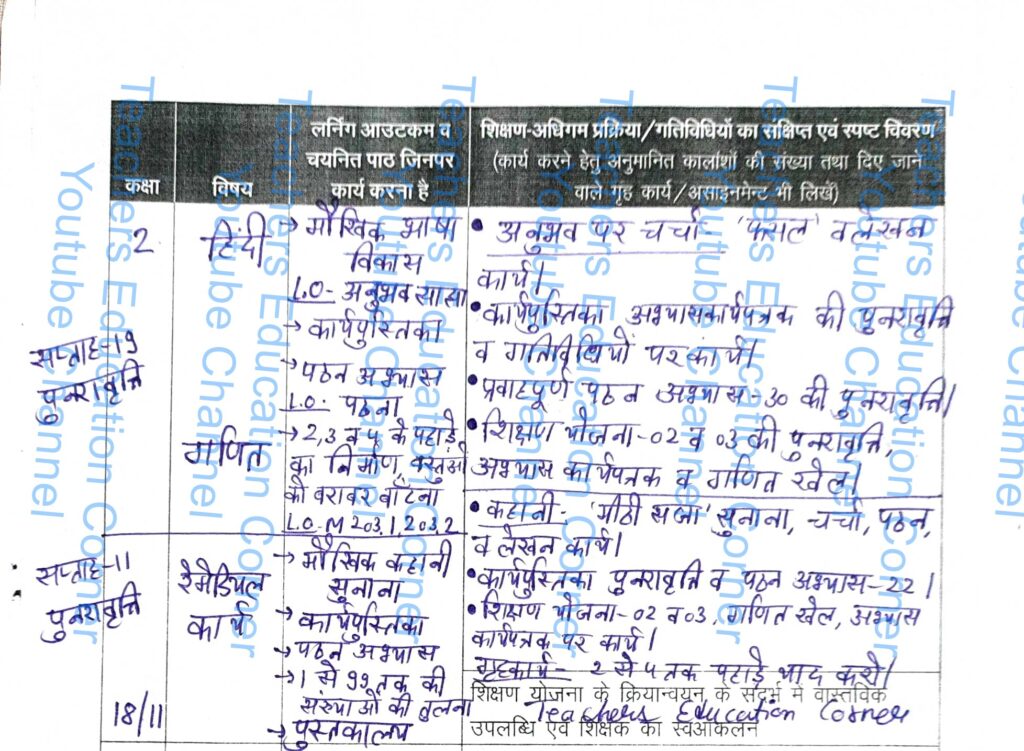 कक्षा
विषय
लर्निंग आउटकम व
चयनित पाठ जिनपर
कार्य करना है
शिक्षण-अधिगम प्रक्रिया/गतिविधियों का संक्षिप्त एवं स्पष्ट विवरण
(कार्य करने हेतु अनुमानित कालांशों की संख्या तथा दिए जाने
वाले गृह कार्य/असाइनमेन्ट भी लिखें)
2
सप्ताह-19
पुनरावृत्ति
हिंदी
गणित
→ मौखिक भाषा
विकास
L.O- अनुभव साझा
→ कार्यपुस्तिका
→ पठन अभ्यास
L.O. पठना
→ 2,3 व 4 के पहाड़े
का निर्माण, वस्तुओं
को बराबर बाँटना
L.O-M 203.1, 203.2
• अनुभव पर चर्चा- 'फसल' व लेखन
कार्य।
• कार्यपुस्तिका अभ्यासकार्यपत्रक की पुनरावृत्ति
व गतिविधियों पर कार्य।
• प्रवाहपूर्ण पठन अभ्यास-30 की पुनरावृत्ति।
• शिक्षण योजना-02 व 03 की पुनरावृत्ति,
अभ्यास कार्यपत्रक व गणित खेल।
सप्ताह-11
पुनरावृत्ति
18/11
रेमेडियल
कार्य
→ मौखिक कहानी
सुनाना
→ कार्यपुस्तिका
→ पठन अभ्यास
→ 1 से 99 तक की
संख्याओं की तुलना
→ पुस्तकालय
• कहानी- 'मीठी सजा' सुनाना, चर्चा, पठन,
व लेखन कार्य।
• कार्यपुस्तिका पुनरावृत्ति व पठन अभ्यास-22।
• शिक्षण योजना-02 व 03, गणित खेल, अभ्यास
कार्यपत्रक पर कार्य।
गृहकार्य- 2 से 4 तक पहाड़े याद करो।
शिक्षण योजना के क्रियान्वयन के संदर्भ में वास्तविक
Teachers Education Corner
उपलब्धि एवं शिक्षक का स्वआकलन
Teachers Education Corner
Youtube Channel
Teachers Education Corner
Youtube Channel
Teachers Education Corner
Youtube Channel
Teachers Education Corner
Youtube Channel
Teachers Education Corner
Youtube Channel
Teachers Education Corner
Youtube Channel